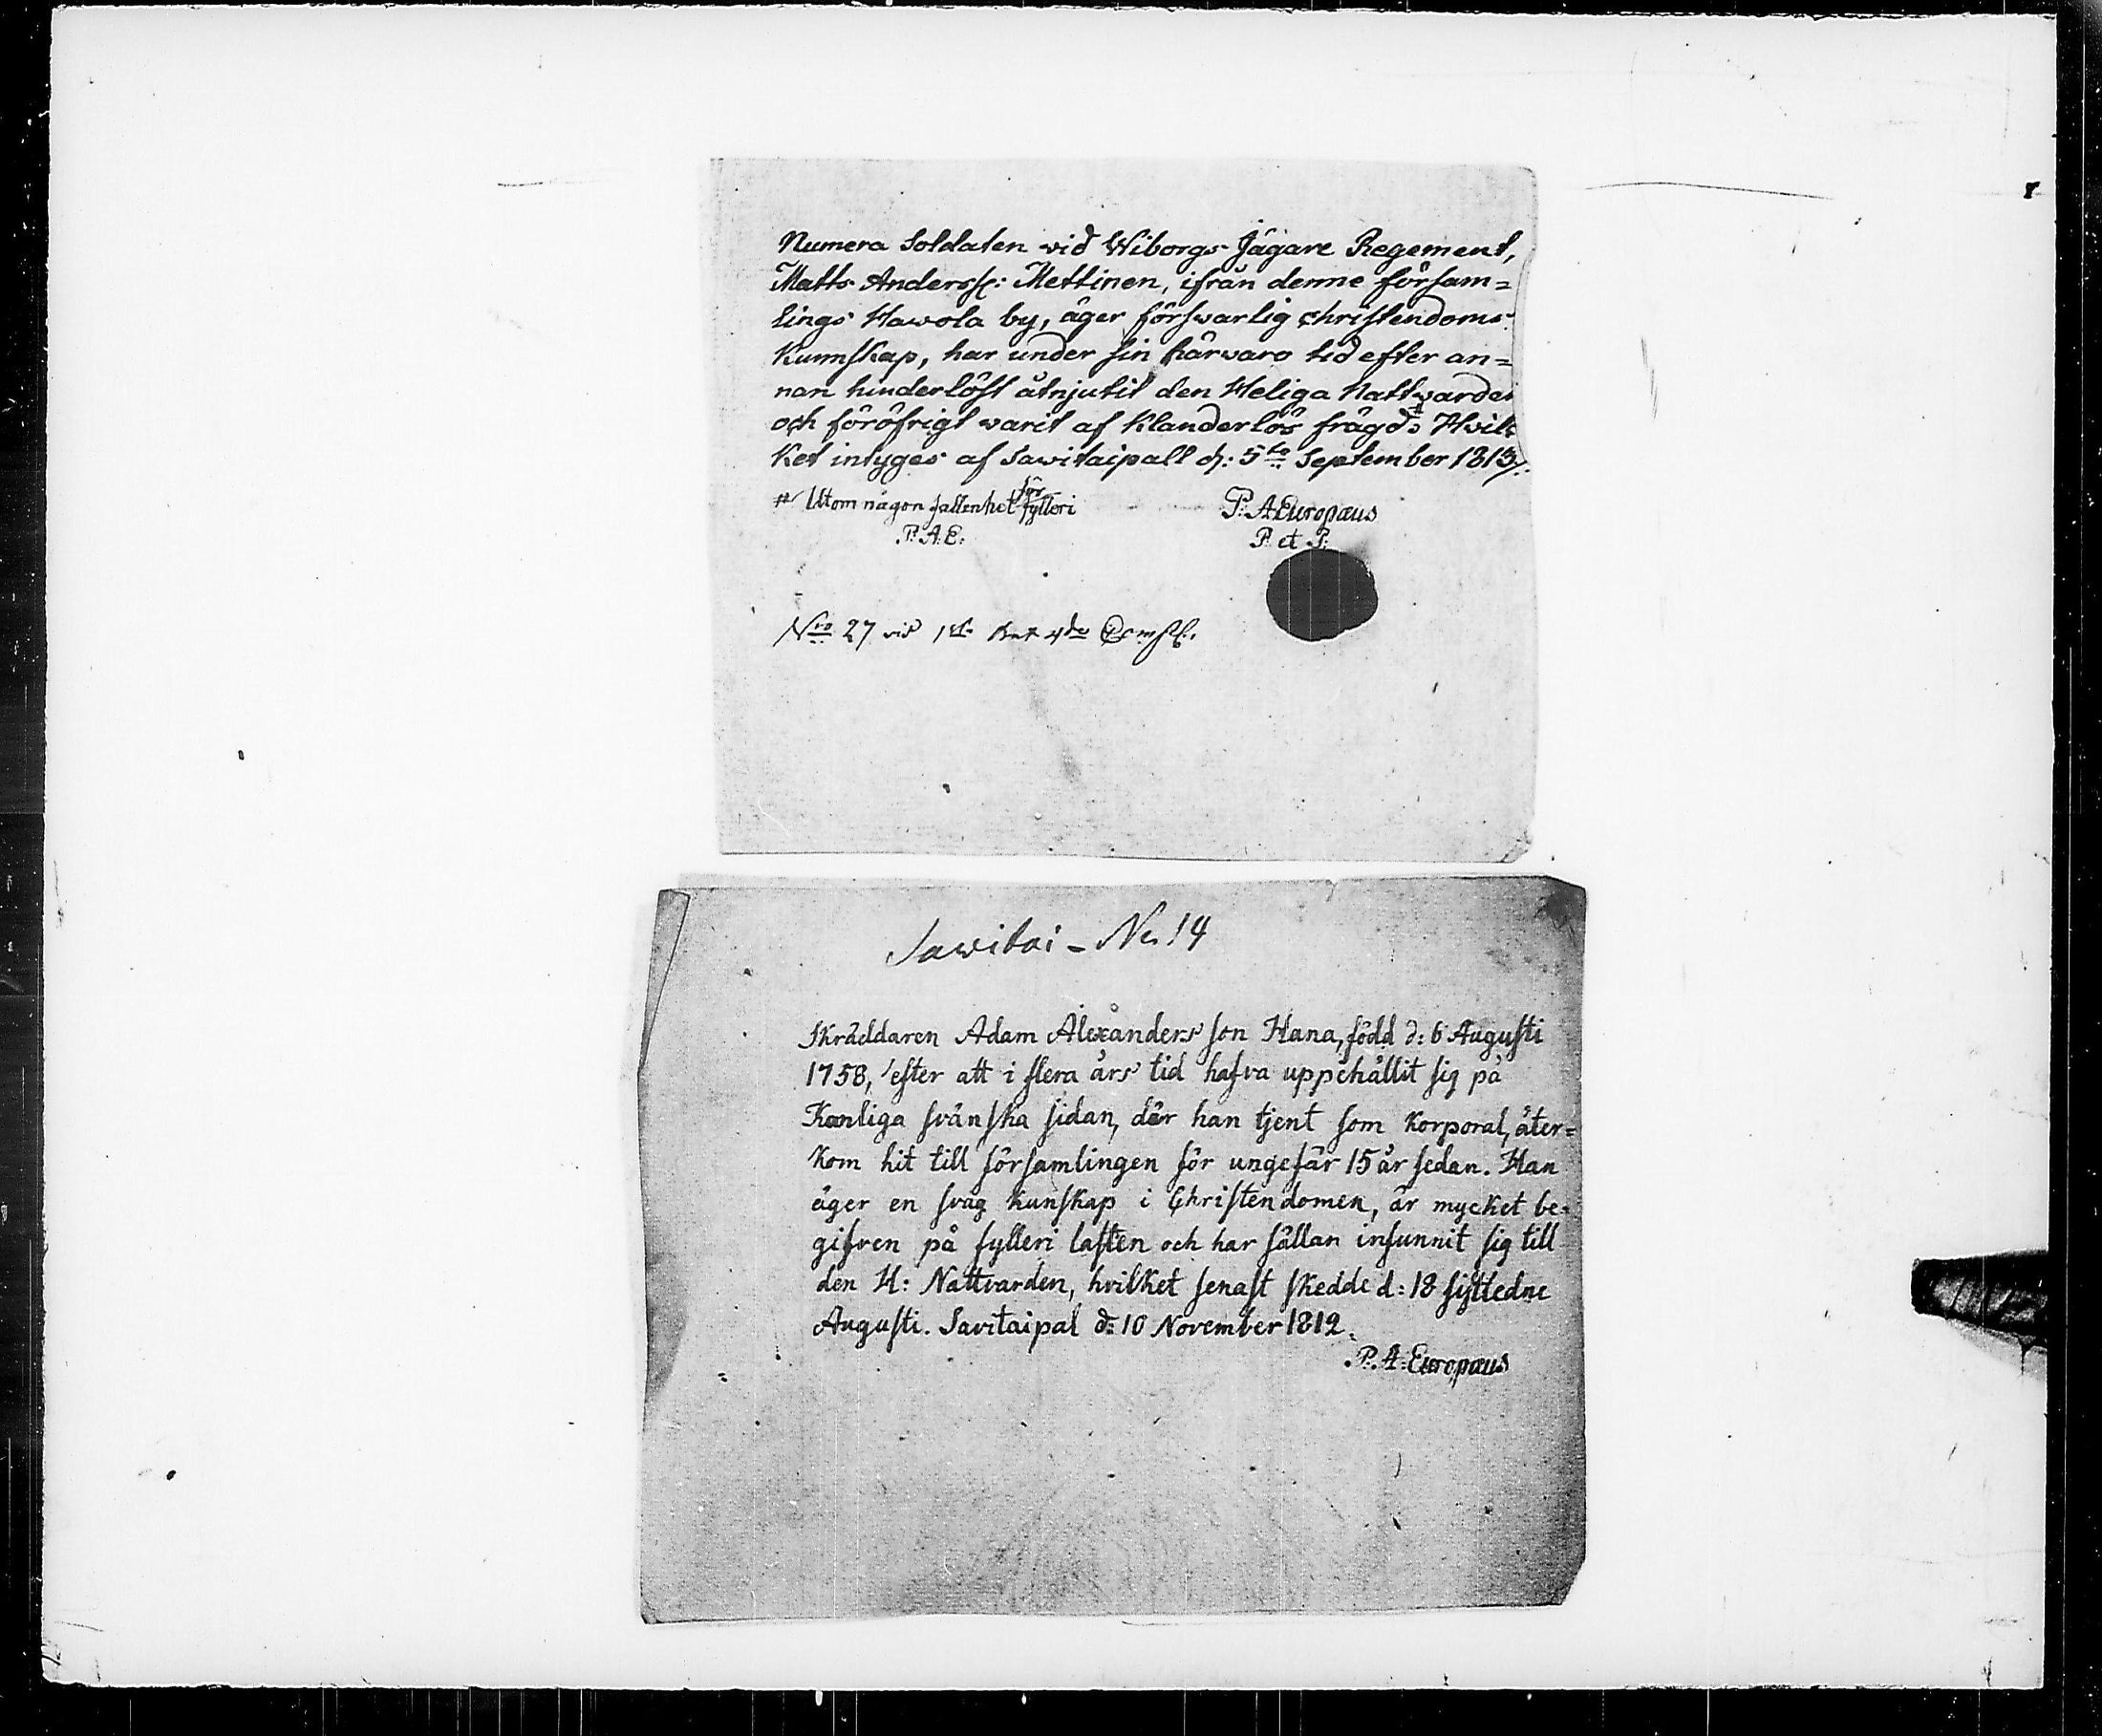 Numera Soldaten vid Wiborgs Jägare Regement,
Matts Anderss: Mettinen, ifrån denne församƷ
lings Hawola by, äger förswarlig christendoms
Kunnskap, har under sin härvaro tid efter an=
nan hinderlöst åtnjutit den Heliga Nattwarden
och föröfrigt warit af Klanderlös frägd # Hvil=
ket intyges af Sawitaipall d: 5te September 1813
# Utom någon fallenhet för fylleri
P. A. Europæus
P. A. E.
P. et P.
Nro 27 vid 1sta 4de Comp:
Sawitai - No 14
Skräddaren Adam Alexanders son Hana, född d: 6 Augusti
1758, efter att i flera års tid hafva uppehållit sig på
Konliga svänska sidan, där han tjent som Korporal, åter=
kom hit till församlingen för ungefär 15 år sedan. Han
äger en svag kunskap i Christendomen, är mycket be=
gifven på fylleri lasten och har sällan infunnit sig till
den H: Nattvarden, hvilket senast skedde d: 18 sistledne
Augusti. Savitaipal d: 10 November 1812.
P. A. Europæus